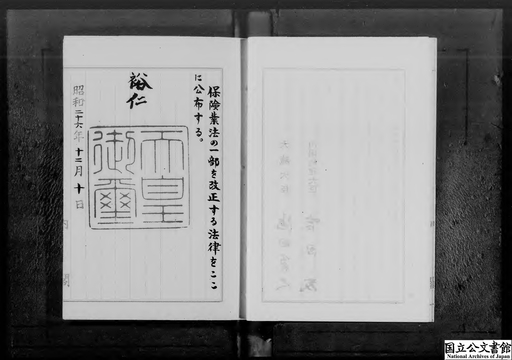 保険業法の一部を改正する法律をここ
に公布する。
裕仁
天皇
御璽
昭和二十六年十二月十日
国立公文書館
National Archives of Japan